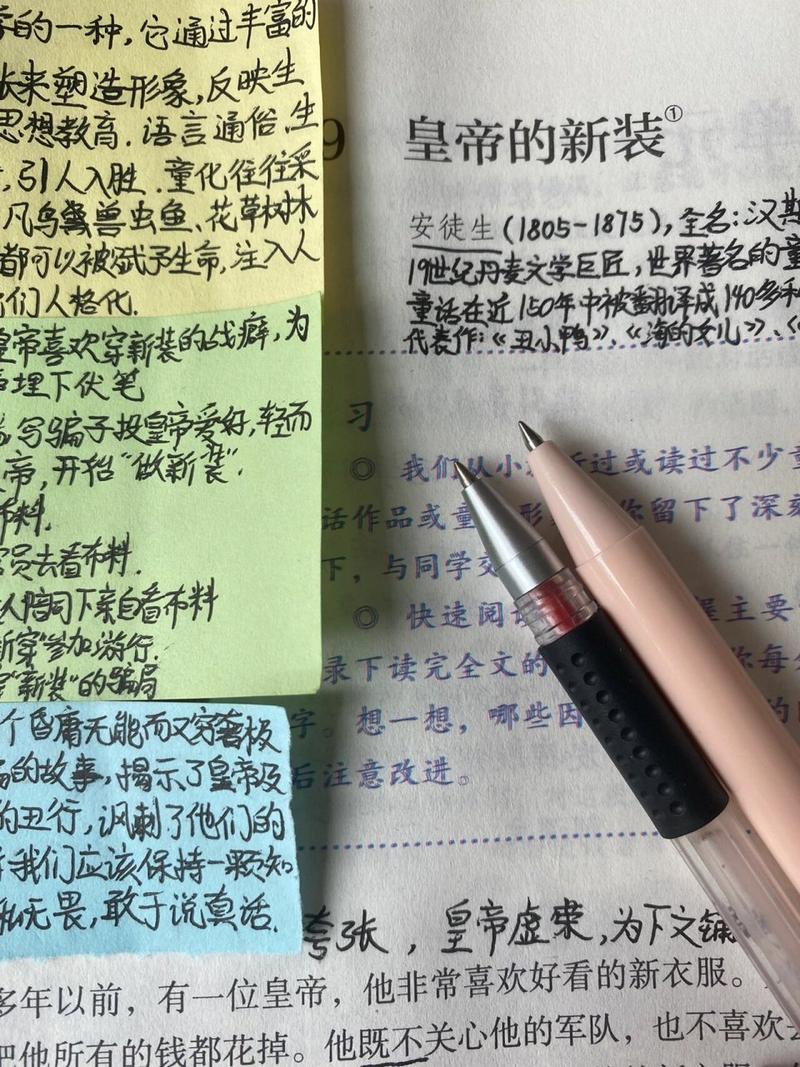 的一种，它通过丰富的
来塑造形象，反映生
思想教育．语言通俗、生
，引人入胜．童化往往采
凡鸟兽虫鱼、花草树木
都可以被赋予生命，注入人
们人格化．
皇帝喜欢穿新装的癖，为
埋下伏笔
写骗子投皇帝爱好，轻而
帝，开始“做新装”．
布料．
官员去看布料．
人陪同下亲自看布料
新穿参加游行．
“新装”的骗局
个昏庸无能而又穷奢极
的故事，揭示了皇帝及
的丑行，讽刺了他们的
我们应该保持一颗知
私无畏，敢于说真话．
9 皇帝的新装①
安徒生(1805-1875)，全名：汉斯
19世纪丹麦文学巨匠，世界著名的童
童话在近150年中被翻译成140多种
代表作：《丑小鸭》、《海的女儿》、《
习
◎ 我们从小 过或读过不少童
话作品或童 形 你留下了深刻
下，与同学交
◎ 快速阅读 主要
录下读完全文的 你每分
字。想一想，哪些因 的
后注意改进。
夸张，皇帝虚荣，为下文铺
多年以前，有一位皇帝，他非常喜欢好看的新衣服。
把他所有的钱都花掉。他既不关心他的军队，也不喜欢去